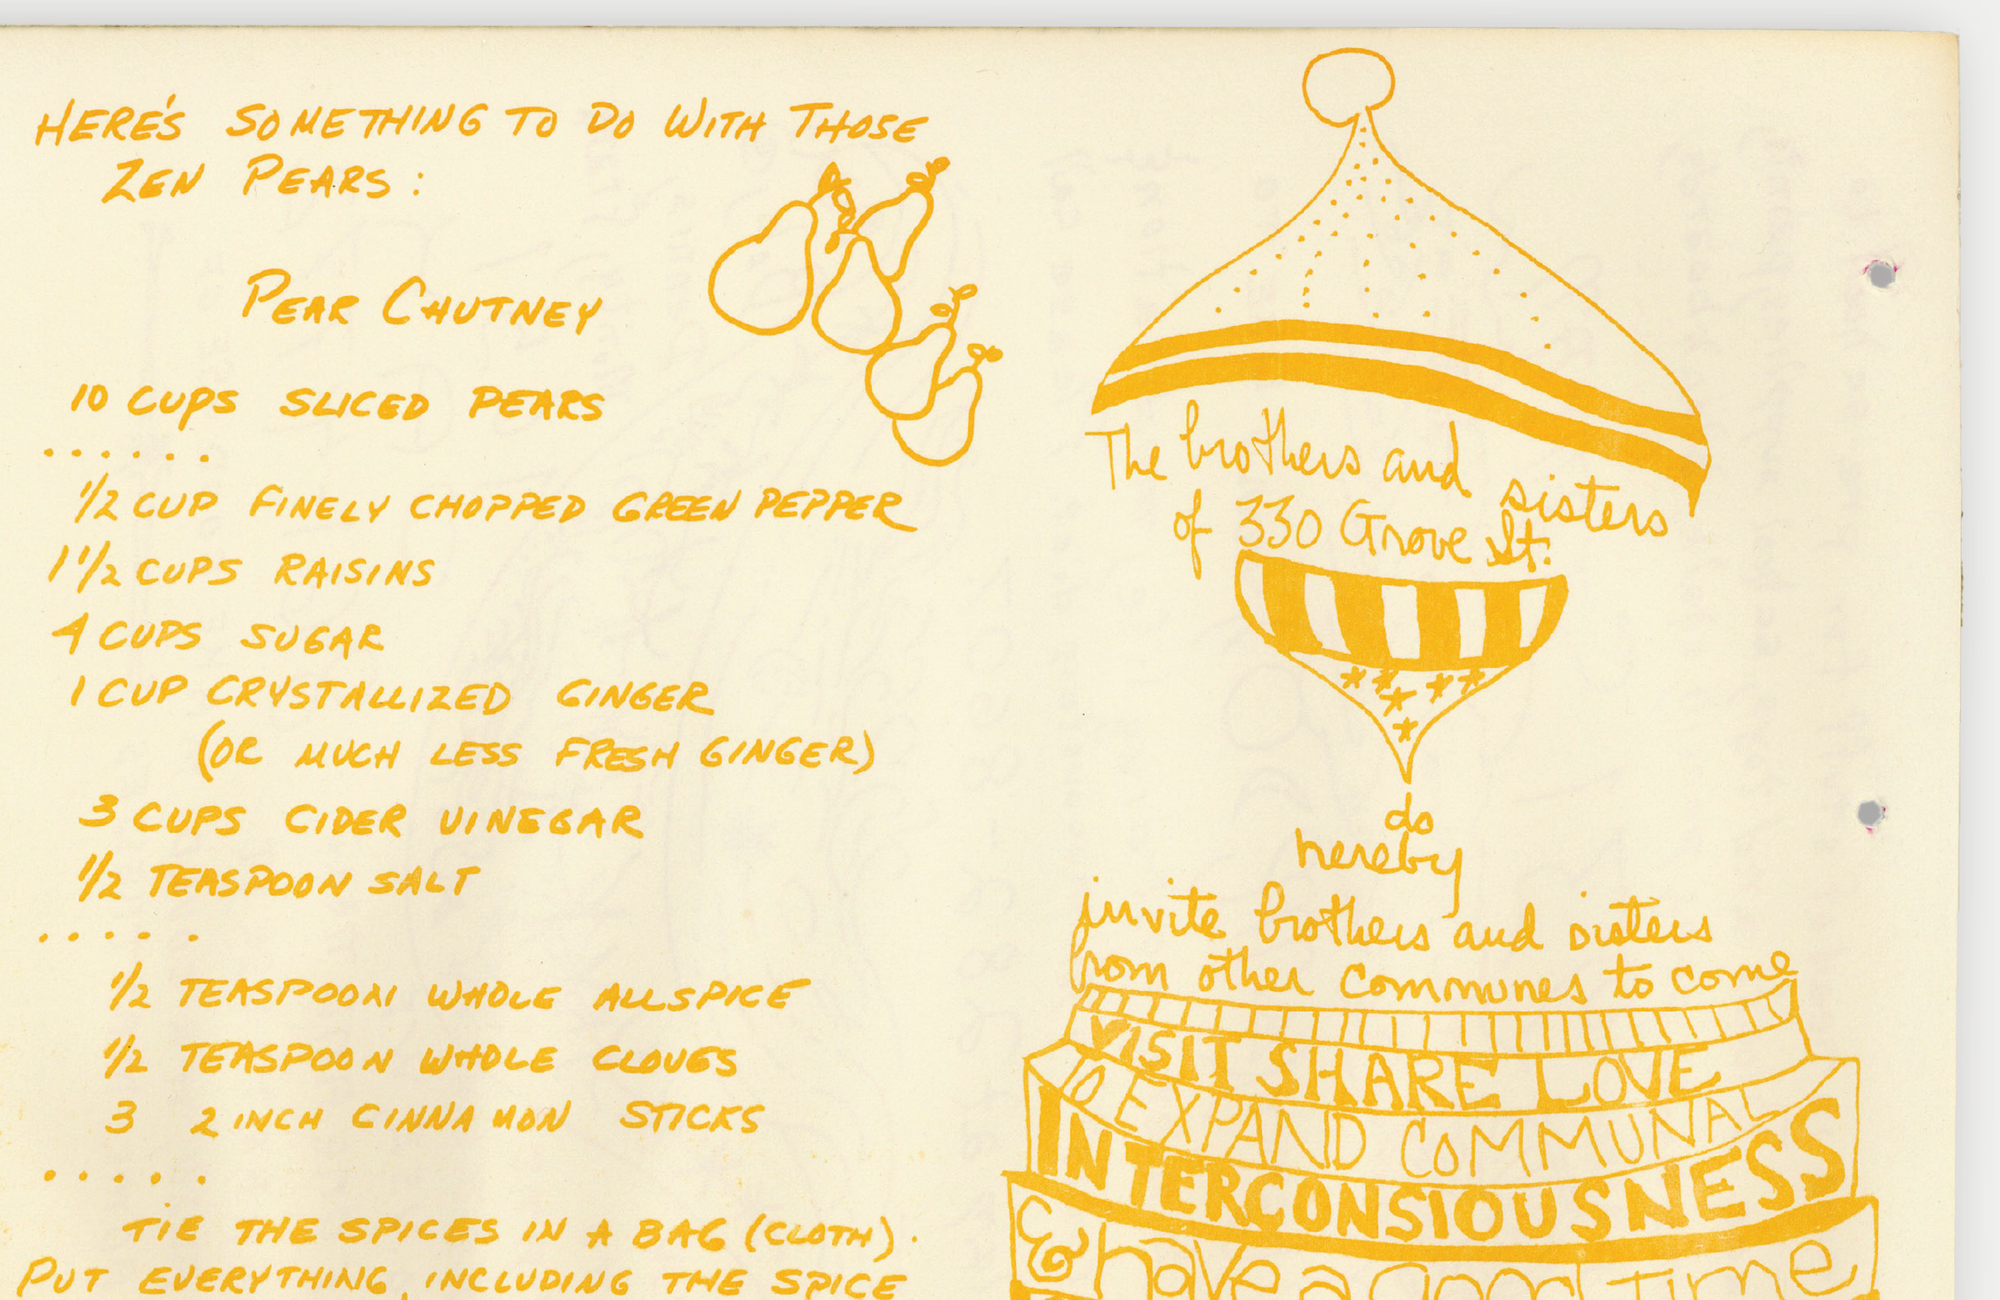 HERE'S SOMETHING TO DO WITH THOSE
ZEN PEARS:
PEAR CHUTNEY
10 CUPS SLICED PEARS
......
1/2 CUP FINELY CHOPPED GREEN PEPPER
1 1/2 CUPS RAISINS
4 CUPS SUGAR
1 CUP CRYSTALLIZED GINGER
(OR MUCH LESS FRESH GINGER)
3 CUPS CIDER VINEGAR
1/2 TEASPOON SALT
.....
1/2 TEASPOON WHOLE ALLSPICE
1/2 TEASPOON WHOLE CLOVES
3 2 INCH CINNAMON STICKS
.....
TIE THE SPICES IN A BAG (CLOTH).
PUT EVERYTHING, INCLUDING THE SPICE
The brothers and sisters
of 330 Grove St.
do
hereby
invite brothers and sisters
from other communes to come
VISIT SHARE LOVE
TO EXPAND COMMUNAL
INTERCONSIOUSNESS
& have a good time